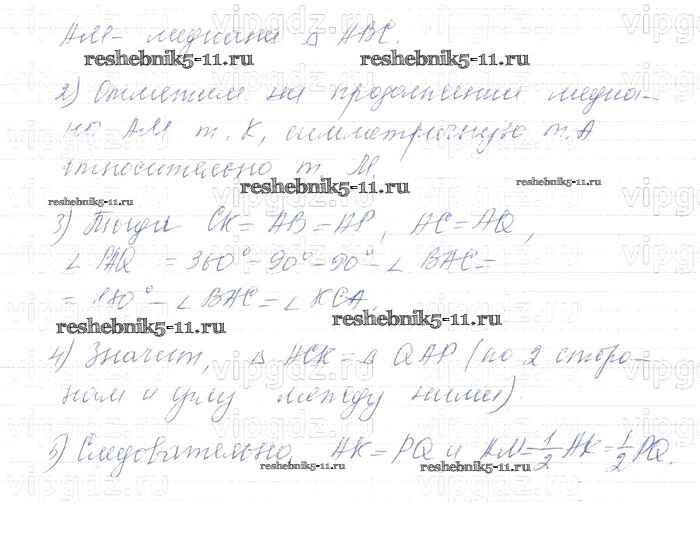 АМ - медиана △ АВС.
reshebnik5-11.ru reshebnik5-11.ru
2) Отметим на продолжении медиа-
ны АМ т. К, симметричную т. А
относительно т. М.
reshebnik5-11.ru reshebnik5-11.ru
reshebnik5-11.ru
3) Тогда СК = АВ = АР, АС = АQ,
∠ PAQ = 360° - 90° - 90° - ∠ ВАС =
= 180° - ∠ ВАС = ∠ КСА.
reshebnik5-11.ru reshebnik5-11.ru
4) Значит, △ АСК = △ QAP (по 2 сторо-
нам и углу между ними).
5) Следовательно, АК = PQ и АМ = 1/2 АК = 1/2 PQ.
reshebnik5-11.ru reshebnik5-11.ru